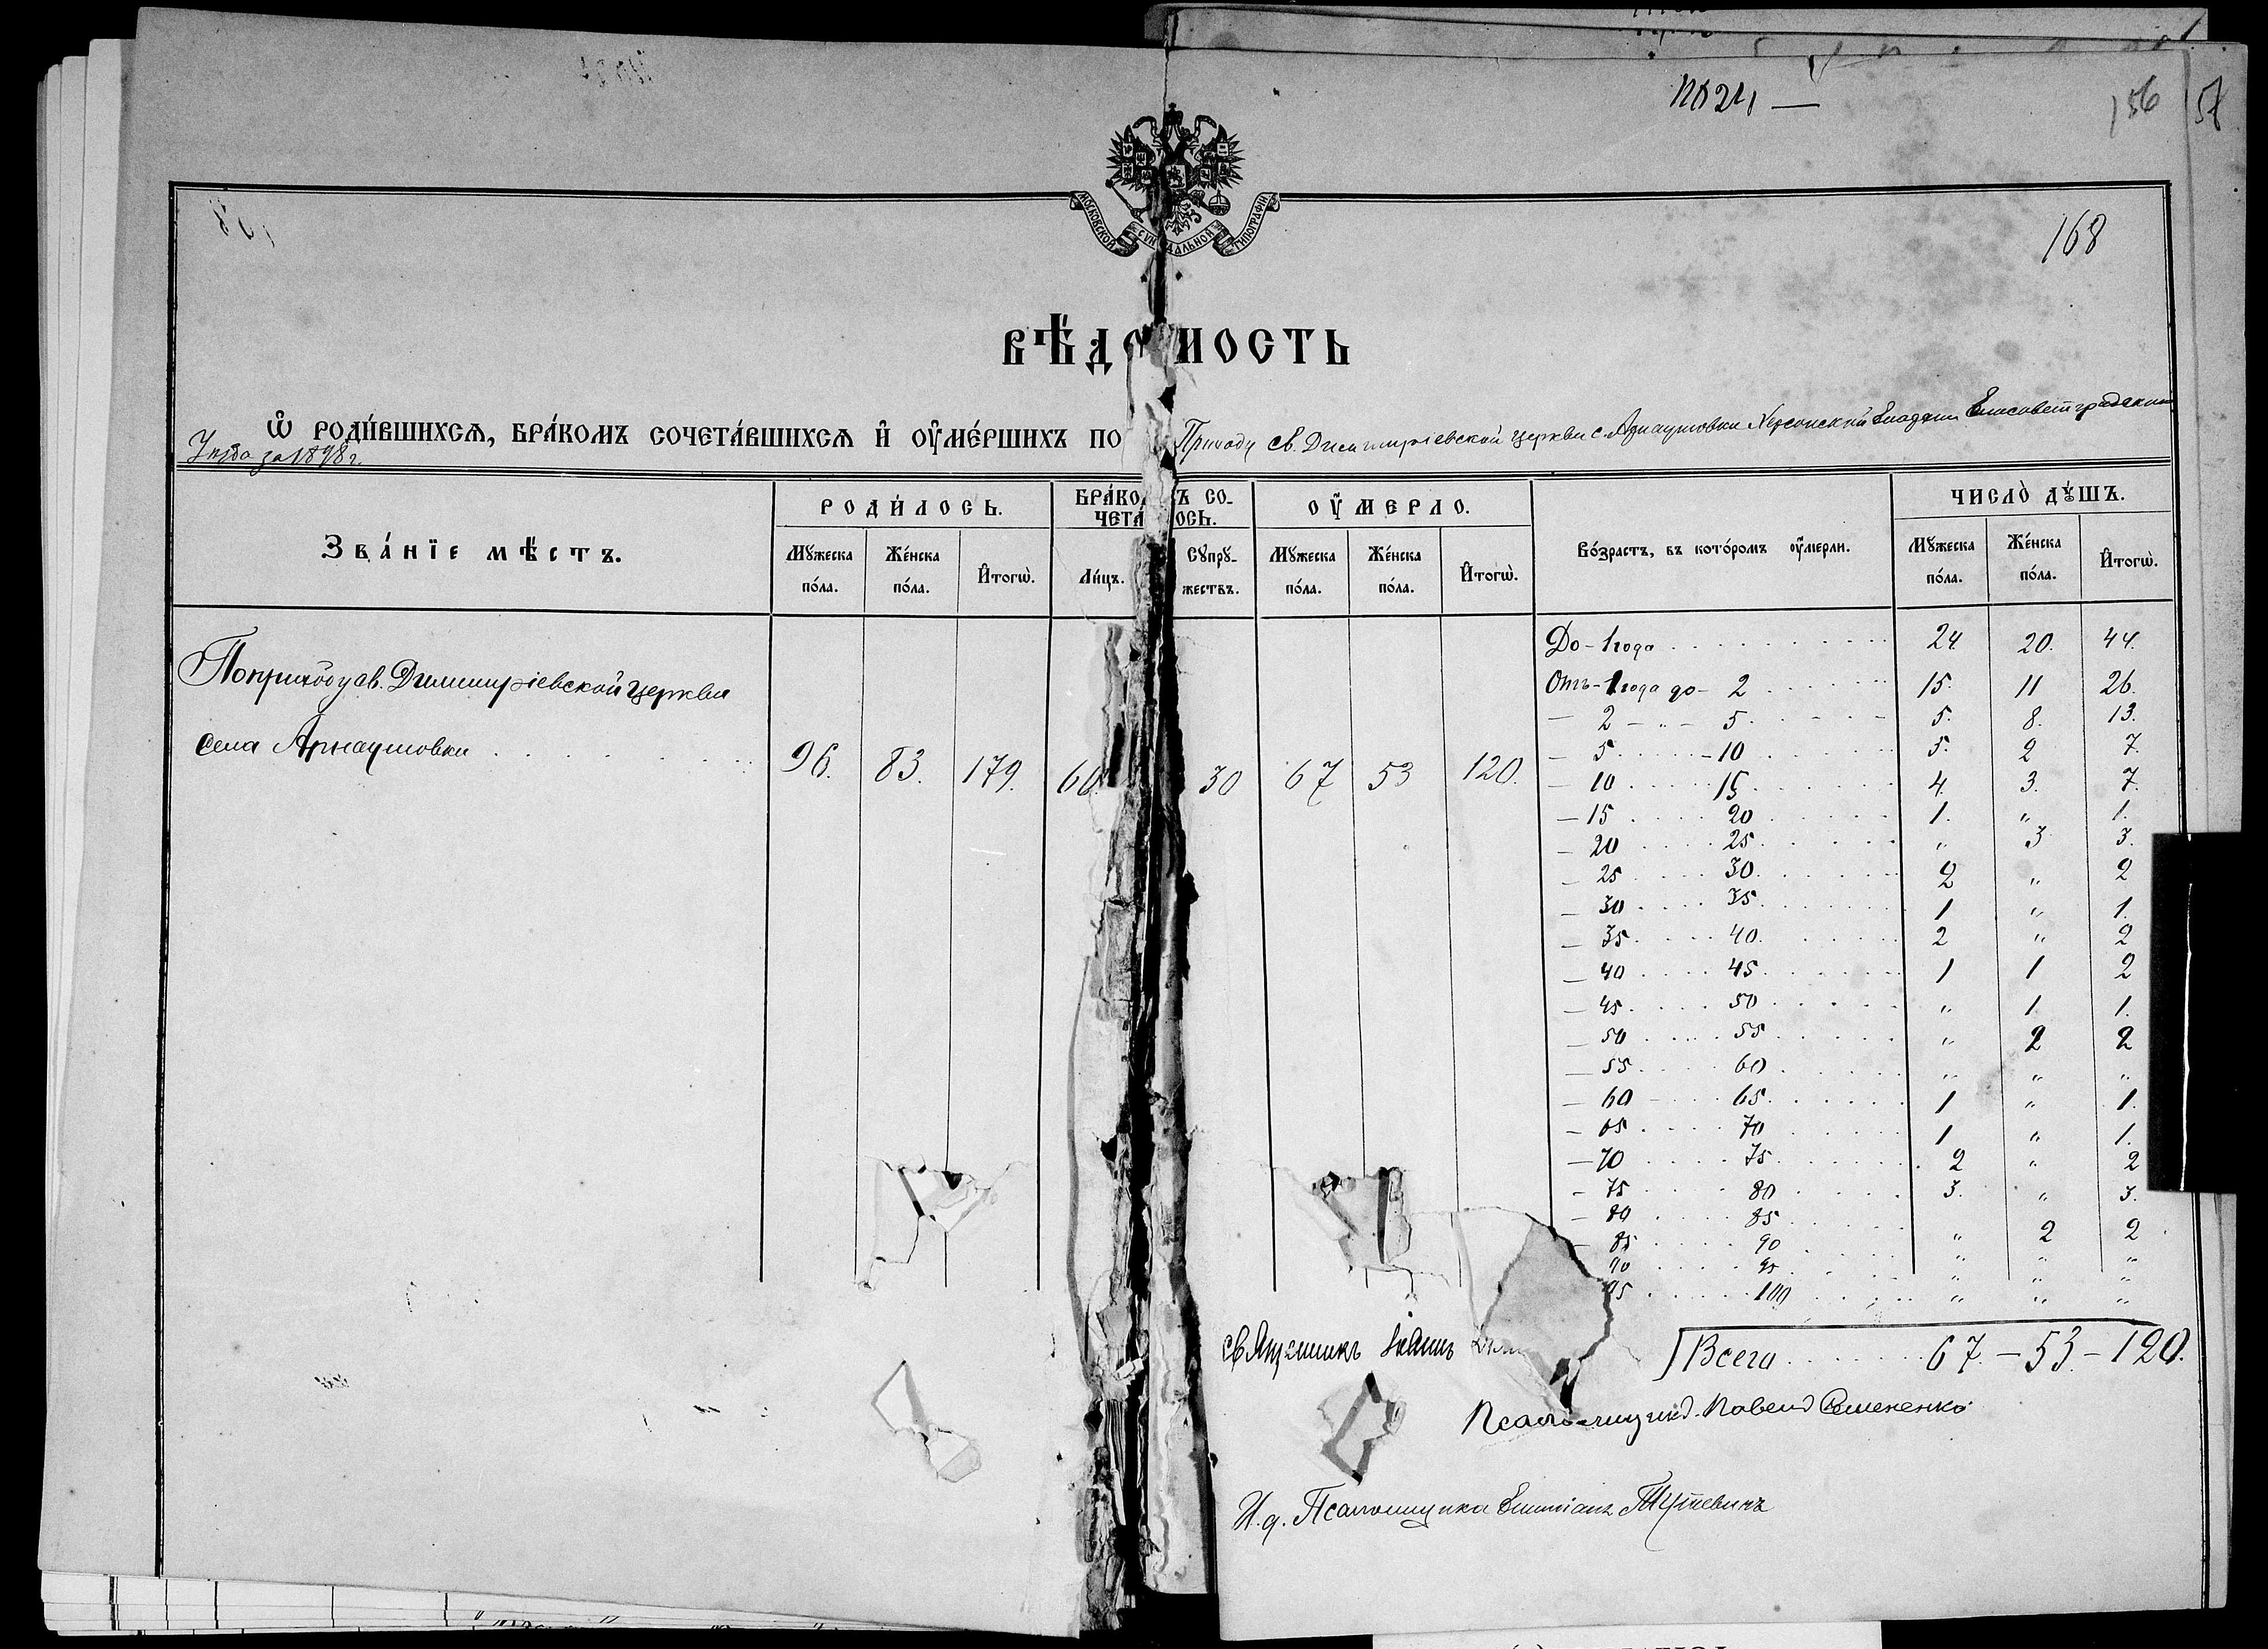 № 24 —
156
57
МОСКОВСКОЙ СѴНОДАЛЬНОЙ ТИПОГРАФІИ
168
ВѢДОМОСТЬ
Ѡ РОДИ́ВШИХСѦ, БРА́КОМЪ СОЧЕТА́ВШИХСѦ И҆ ОУ҆МЕ́РШИХЪ ПО Приходу св. Димитріевской церкви с. Арнаутовки Херсонской Епархіи Елисаветградскаго
Уѣзда за 1898 г.
Зва́нїе мѣ́стъ.
РОДИ́ЛОСЬ.
Мꙋ́жеска по́ла.
Же́нска по́ла.
И҆тогѡ̀.
БРА́КОМЪ СОЧЕТА́ЛОСЬ.
Ли́цъ.
Сꙋпрꙋ́жествъ.
ОУ҆́МЕРЛО.
Мꙋ́жеска по́ла.
Же́нска по́ла.
И҆тогѡ̀.
Во́зрастъ, въ кото́ромъ оу҆́мерли.
ЧИСЛО̀ ДꙊ́ШЪ.
Мꙋ́жеска по́ла.
Же́нска по́ла.
И҆тогѡ̀.
По приходу св. Димитріевской церкви
села Арнаутовки . . . . . . 96. 83. 179. 60. 30 67 53 120.
До - 1 года . . . . . 24 20. 44.
Отъ - 1 года до - 2 . . . . . 15. 11 26.
— 2 - „ - 5 . . . . . 5. 8. 13.
— 5 . . . . - 10 . . . . . 5. 2 7.
— 10 . . . . 15 . . . . . 4. 3. 7.
— 15 . . . . 20 . . . . . 1. „ 1.
— 20 . . . . 25 . . . . . „ 3 3.
— 25 . . . . 30 . . . . . 2 „ 2
— 30 . . . . 35 . . . . . 1 „ 1.
— 35 . . . . 40 . . . . . 2 „ 2
— 40 . . . . 45 . . . . . 1 1 2
— 45 . . . . 50 . . . . . „ 1. 1.
— 50 . . . . 55 . . . . . „ 2 2
— 55 . . . . 60 . . . . . „ „ „
— 60 . . . . 65 . . . . . 1 „ 1.
— 65 . . . . 70 . . . . . 1 „ 1.
— 70 . . . . 75 . . . . . 2 „ 2
— 75 . . . . 80 . . . . . 3. „ 3.
— 80 . . . . 85 . . . . . „ 2 2
— 85 . . . . 90 . . . . . „ „ „
90 . . . . 95 . . . . . „ „ „
95 . . . . 100 . . . . . „ „ „
Всего . . . . . 67. - 53. - 120.
Священникъ Іоаннъ
Псаломщикъ Павелъ Семененко
И. д. Псаломщика